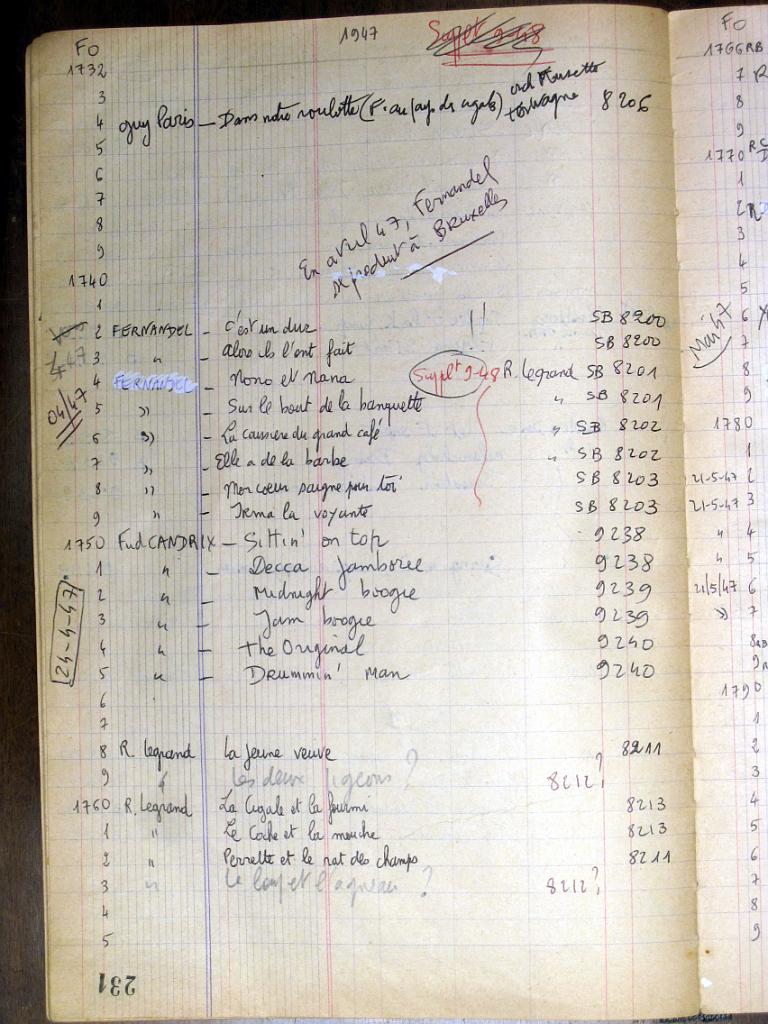 FO 1947 Supplt 9-48
1732
3
4 Guy Paris — Dans notre roulotte (F. au pays des cigales) orch Musette 8206
5
6
7
8
9
En avril 47, Fernandel
se produit à Bruxelles
1740
1
2 FERNANDEL - C'est un dur !! SB 8200
4-47 3 " - Alors ils l'ont fait SB 8200
4 FERNANDEL - Nono et Nana Supplt 9-48 R. Legrand SB 8201
04/47 5 " - Sur le bout de la banquette " SB 8201
6 " - La caissière du grand café " SB 8202
7 " - Elle a de la barbe " SB 8202
8 " - Mon coeur saigne pour toi SB 8203
9 " - Irma la voyante SB 8203
1750 Fud CANDRIX — Sittin' on top 9238
1 " — Decca Jamboree 9238
2 " — Midnight boogie 9239
24-4-47 3 " — Jam boogie 9239
4 " — the Original 9240
5 " — Drummin' Man 9240
6
7
8 R. Legrand La Jeune veuve 8211
9 " Les deux pigeons ? 8212 ?
1760 R. Legrand La Cigale et la fourmi 8213
1 " Le Coche et la mouche 8213
2 " Perrette et le rat des champs 8211
3 " Le loup et l'agneau ? 8212 ?
4
5
231
FO
1766 RB
7 R
8
9
1770
1
2 R
3
4
5
Mai 47 6
7
8
9
1780
1
21-5-47 2
21-5-47 3
" 4
" 5
21/5/47 6
" 7
8
9
1790
1
2
3
4
5
6
7
8
9